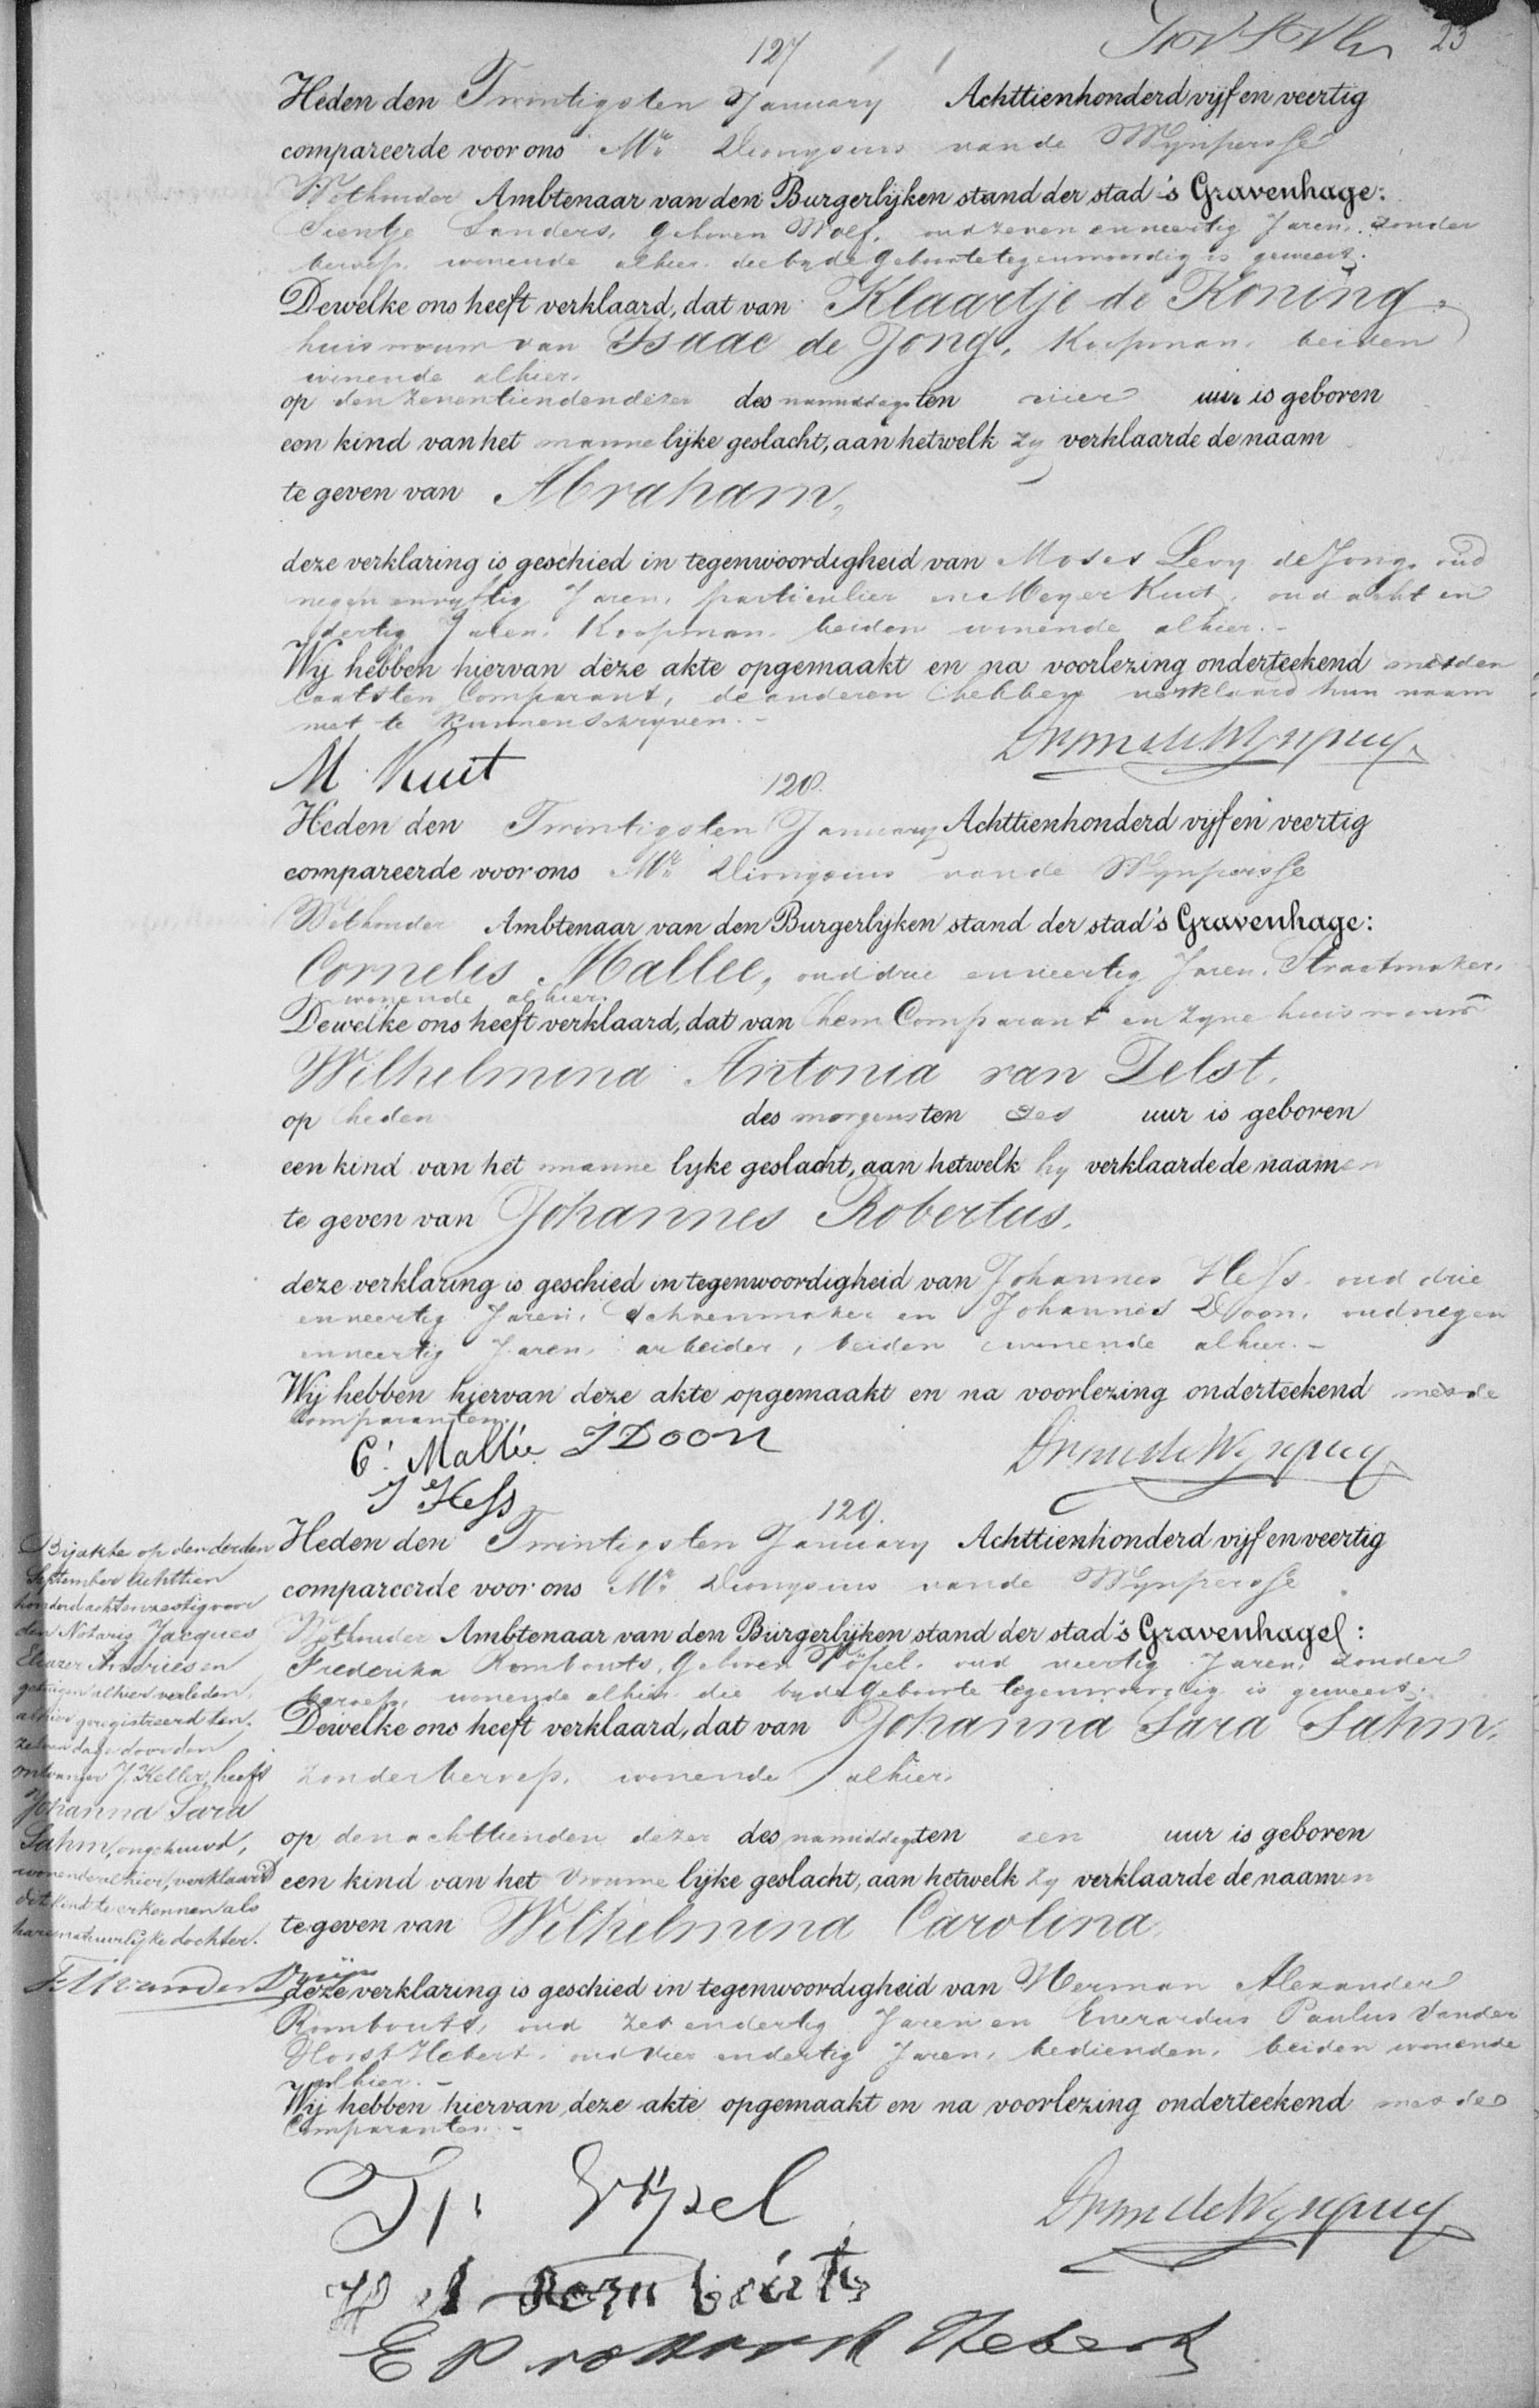 23
127
Heden den Twintigsten January Achttienhonderd vijf en veertig
compareerde voor ons Mr. Dionysius vande Wynpersse
Wethouder Ambtenaar van den Burgerlijken stand der stad 's Gravenhage:
Sientje Sanders, geboren Wolf, oud zeven en veertig Jaren, zonder
beroep, wonende alhier, die by de geboorte tegenwoordig is geweest.
Dewelke ons heeft verklaard, dat van Klaartje de Koning,
huisvrouw van Isaac de Jong, Koopman, beiden
wonende alhier,
op den zeventienden dezer des namiddags ten vier uur is geboren
een kind van het mannelijke geslacht, aan hetwelk zy verklaarde de naam
te geven van Abraham,
deze verklaring is geschied in tegenwoordigheid van Moses Levy de Jong, oud
negen en vyftig Jaren, particulier en Meyer Kuit, oud acht en
dertig Jaren, Koopman, beiden wonende alhier.-
Wij hebben hiervan deze akte opgemaakt en na voorlezing onderteekend met den
laatsten Comparant, de anderen hebben verklaard hun naam
niet te kunnen schryven.-
M Kuit
128.
Heden den Twintigsten January Achttienhonderd vijf en veertig
compareerde voor ons Mr. Dionysius vande Wynpersse
Wethouder Ambtenaar van den Burgerlijken stand der stad 's Gravenhage:
Cornelis Mallee, oud drie en veertig Jaren, Straatmaker,
wonende alhier.
Dewelke ons heeft verklaard, dat van hem Comparant en zyne huisvrouw
Wilhelmina Antonia van Delst,
op heden des morgens ten zes uur is geboren
een kind van het mannelijke geslacht, aan hetwelk hy verklaarde de naamen
te geven van Johannes Robertus,
deze verklaring is geschied in tegenwoordigheid van Johannes Hess, oud drie
en veertig Jaren, Schoenmaker en Johannes Doon, oud negen
en veertig Jaren, arbeider, beiden wonende alhier.-
Wij hebben hiervan deze akte opgemaakt en na voorlezing onderteekend met de
Comparanten.
C. Mallée J Doon
J Hess
129.
Heden den Twintigsten January Achttienhonderd vijf en veertig
compareerde voor ons Mr. Dionysius vande Wynpersse
Wethouder Ambtenaar van den Burgerlijken stand der stad 's Gravenhage:
Frederika Rombouts, geboren Töpel, oud veertig Jaren, zonder
beroep, wonende alhier, die by de geboorte tegenwoordig is geweest.
Dewelke ons heeft verklaard, dat van Johanna Sara Sahm,
zonder beroep, wonende alhier,
op den achttienden dezer des namiddags ten een uur is geboren
een kind van het vrouwelijke geslacht, aan hetwelk zy verklaarde de naamen
te geven van Wilhelmina Carolina,
deze verklaring is geschied in tegenwoordigheid van Herman Alexander
Rombouts, oud zes en dertig Jaren en Everardus Paulus Vander
Horst Hebert, oud vier en dertig Jaren, bedienden, beiden wonende
alhier.-
Wij hebben hiervan deze akte opgemaakt en na voorlezing onderteekend met de
Comparanten.-
Töpel
H A Rombouts
E P vd Horst Hebert
Bij akte op den derden
September Achttien
honderd achtenzestig voor
den Notaris Jacques
Eleazer Andries en
getuigen alhier verleden,
alhier geregistreerd ten
zelven dage door den
ontvanger J. Keller, heeft
Johanna Sara
Sahm, ongehuwd,
wonende alhier, verklaard
dit kind te erkennen als
hare natuurlijke dochter.